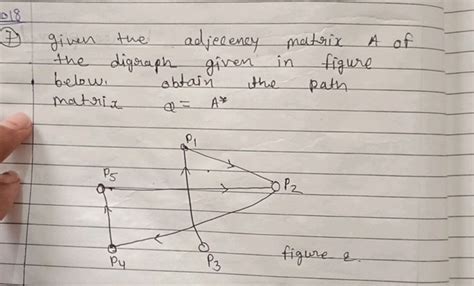 2018
7 given the adjecency matrix A of
the digraph given in figure
below. obtain the path
matrix Q = A*
P1
P5
P2
P4
P3
figure 2.